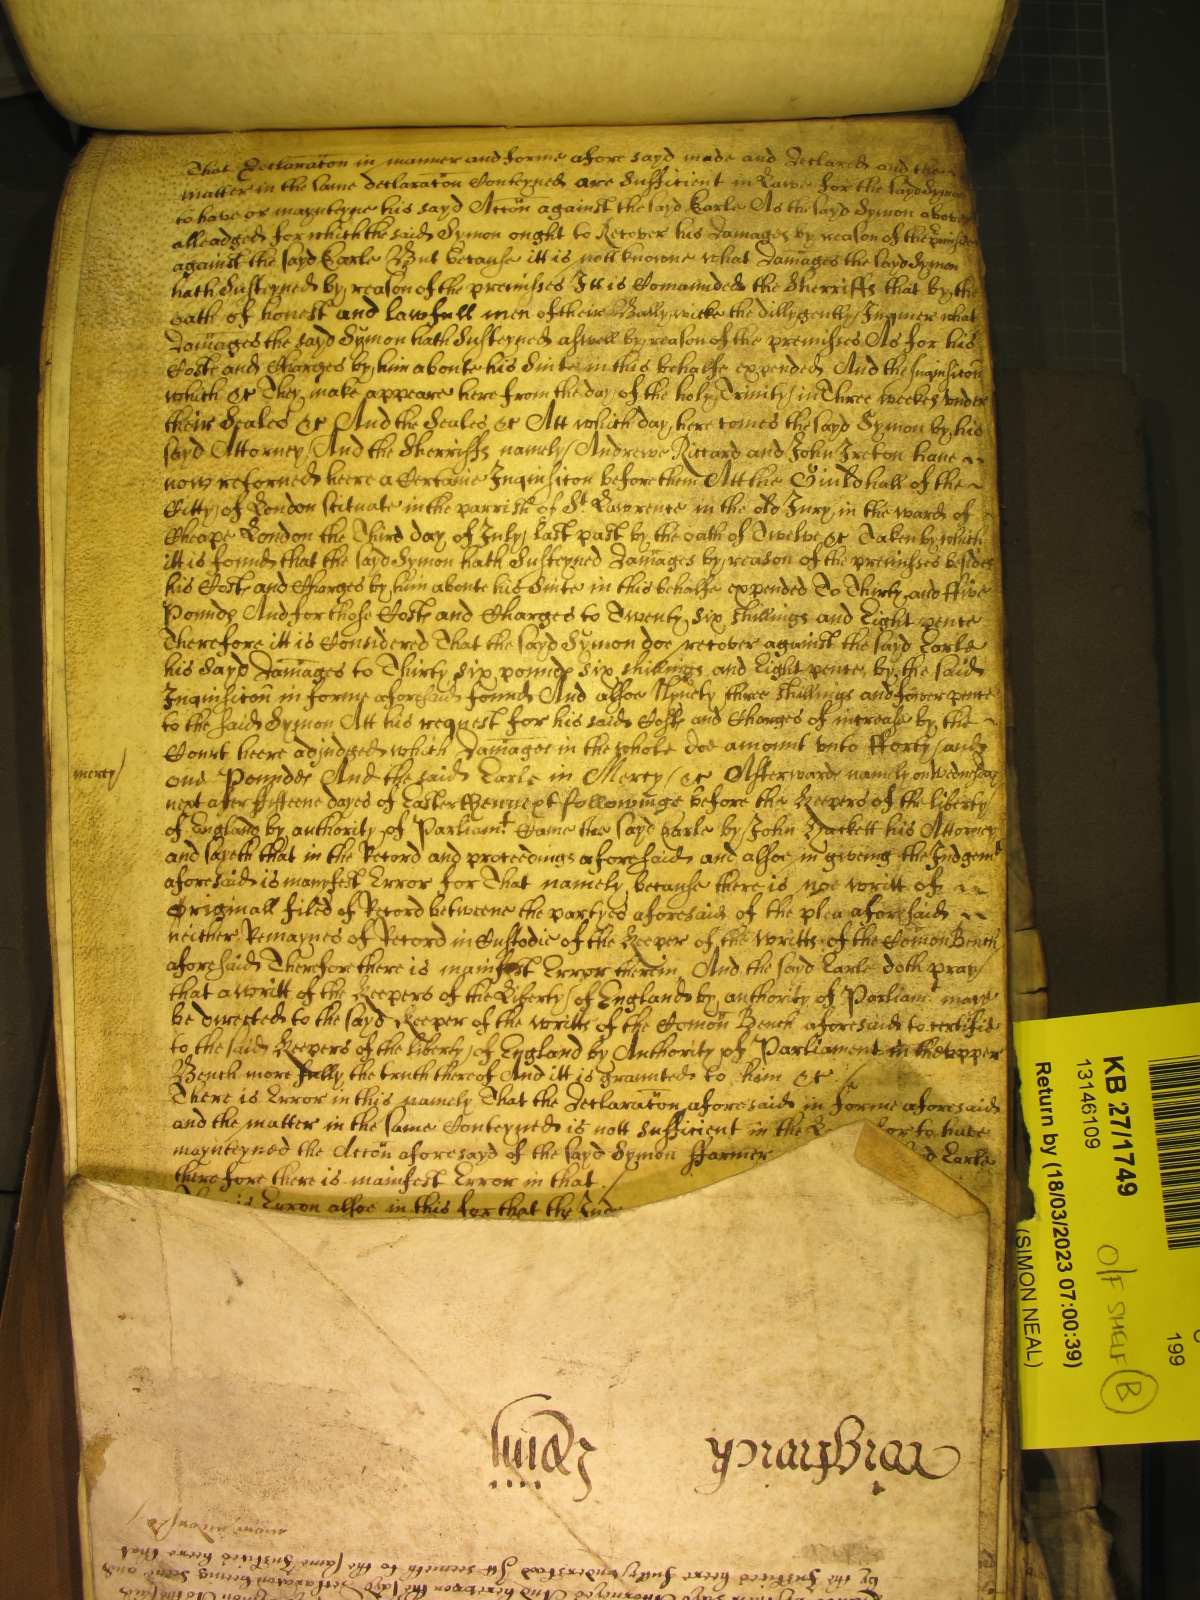 That Declaraton in manner and forme afore sayd made and Declared and the
matter in the same declaraton Conteyned are Sufficient in Lawe for the sayd Symon
to have or maynteyne his sayd Accon against the sayd Earle As the sayd Symon above
alleadged for which the said Symon ought to Recover his Damages by reason of the premisses
against the sayd Earle But because itt is nott knowne what Damages the sayd Symon
hath Susteyned by reason of the premisses Itt is Comaunded the Sherriffs that by the
oath of honest and lawfull men of their Baillywicke the dillygently Inquier what
Damages the sayd Symon hath Susteyned aswell by reason of the premisses As for his
Costs and Charges by him aboute his Suite in this behalfe expended And the Inquisicon
which &c They make appeare here from the day of the holy Trinity in Three weekes under
their Seales &c And the Seales &c Att which day here comes the sayd Symon by his
sayd Attorney And the Sherriffs namely Andrewe Riccard and John Ireton have
now retorned heere a Certaine Inquisicon before them Att the Guildhall of the
Citty of London scituate in the parrish of St Lawrence in the old Jury in the ward of
Cheape London the Third day of July last past by the oath of Twelve &c Taken by which
itt is found that the sayd Symon hath Susteyned Damages by reason of the premisses besides
his Costs and Charges by him aboute his Suite in this behalfe expended To Thirty and ffive
Pounds And for those Costs and Charges to Twenty six shillings and Eight pence
Therefore itt is Considered That the sayd Symon doe recover against the sayd Earle
his sayd Damages to Thirty six pounds six shillings and Eight pence by the said
Inquisicon in forme aforesaid found And alsoe Nynety three shillings and fower pence
to the said Symon Att his request for his said Costs and Charges of increase by the
Court heere adjudged which Damages in the whole doe amount unto fforty and
mercy
one Poundes And the said Earle in Mercy &c Afterwards namely on Wednesday
next after fifteene dayes of Easter then next followinge before the Keepers of the liberty
of England by authority of Parliamt Came the sayd Earle by John Hackett his Attorney
and sayeth that in the Record and proceedings aforesaid and alsoe in giveing the Judgemt
aforesaid is manyfest Error for That namely because there is noe writt of
Originall filed of Record betweene the partyes aforesaid of the plea aforesaid
neither Remaynes of Record in Custodie of the Keeper of the writts of the Comon Bench
aforesaid Therefore there is manifest Error therein And the sayd Earle doth pray
that a writt of the Keepers of the Liberty of England by authority of Parliamt may
be directed to the sayd Keeper of the writts of the Comon Bench aforesaid to certifie
to the said Keepers of the liberty of England by Authority of Parliament in the upper
Bench more fully the truth thereof And itt is graunted to him &c
There is Error in this namely That the Declaraton aforesaid in forme aforesaid
and the matter in the same Conteyned is nott Sufficient in the for to have
maynteyned the Accon aforesayd of the sayd Symon ffarmer Earle
therefore there is manifest Error in that
is Error alsoe in this for that the
KB 27/1749
13146109
Return by (18/03/2023 07:00:39)
(SIMON NEAL)
O/F SHELF B
199